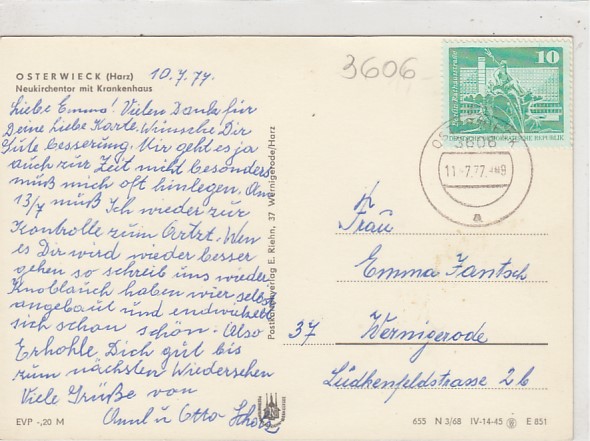 OSTERWIECK (Harz) 10.7.77.
Neukirchentor mit Krankenhaus
Liebe Emma! Vielen Dank für
Deine Liebe Karte. Wünsche Dir
Gute besserung. Mir geht es ja
auch zur Zeit nicht besonders
muß mich oft hinlegen. Am
13/7 muß Ich wieder zur
Kontrolle zum Artzt. Wen
es Dir wird wieder besser
gehen so schreib uns wieder
Knoblauch haben wier selbst
angebaut und endwickelt
sich schon schön. Also
Erhohle Dich gut bis
zum nächsten Wiedersehen
Viele Grüße von
u Otto
EVP -,20 M
Postkartenverlag E. Riehn, 37 Wernigerode/Harz
3606
10
Berlin, Rathausstraße
DEUTSCHE DEMOKRATISCHE REPUBLIK
3606
11.-7.77.
a
Frau
Emma Jantsch
37 Wernigerode
Lüdkenfeldstrasse 2b
655 N 3/68 IV-14-45 E 851